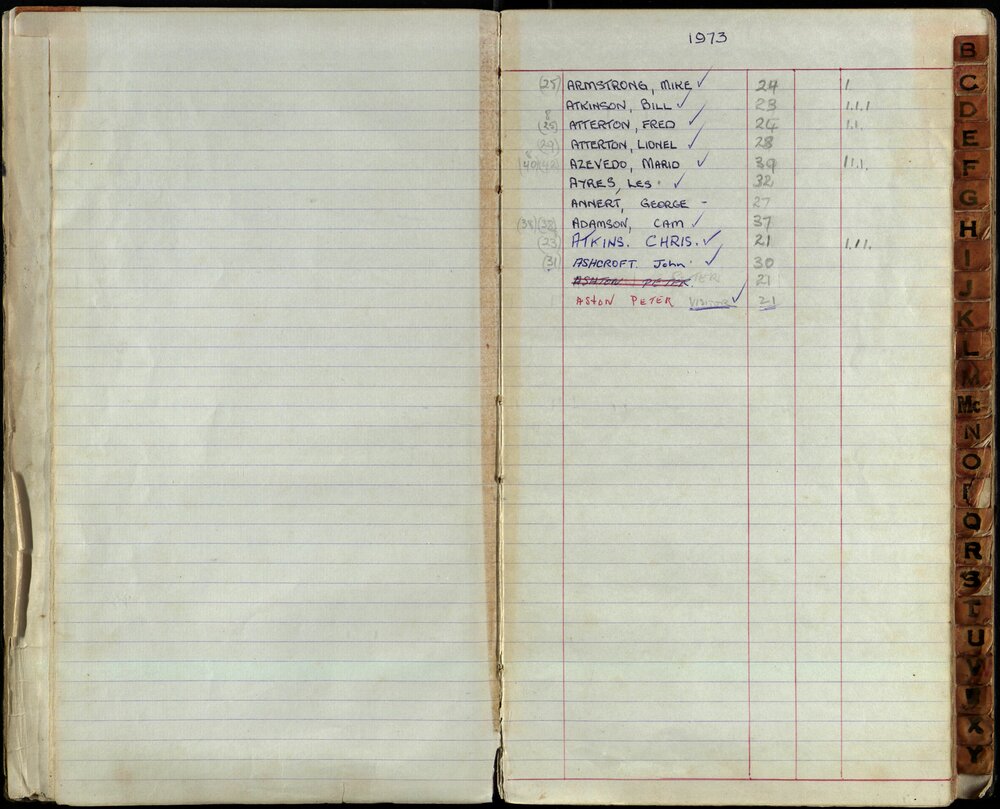 1973
(25) ARMSTRONG, MIKE ✓ 24 1.
ATKINSON, BILL ✓ 23 1.1.1
8 (25) ATTERTON, FRED ✓ 24 1.1.
(29) ATTERTON, LIONEL ✓ 28
(40)(42) AZEVEDO, MARIO ✓ 39 11.1.
AYRES, LES. ✓ 32
ANNERT, GEORGE - 27
(38)(38) ADAMSON, CAM ✓ 37
(23) ATKINS. CHRIS. ✓ 21 1.11.
(31) ASHCROFT. John. ✓ 30
ASHTON PETER 21
ASTON PETER VISITOR ✓ 21
B
C
D
E
F
G
H
I
J
K
L
M
Mc
N
O
P
Q
R
S
T
U
V
X
Y